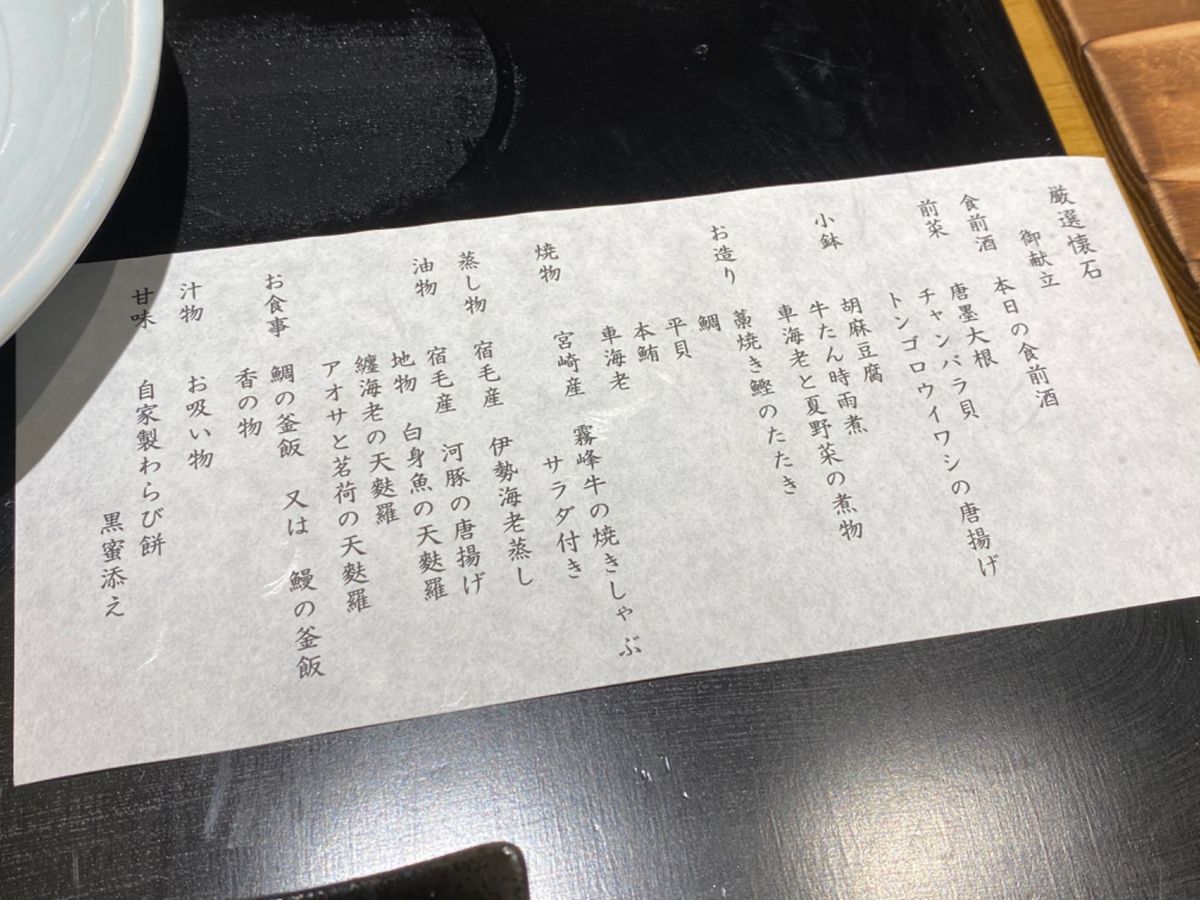 厳選懐石
御献立
食前酒 本日の食前酒
前菜 唐墨大根
チャンバラ貝
トンゴロウイワシの唐揚げ
小鉢 胡麻豆腐
牛たん時雨煮
車海老と夏野菜の煮物
お造り 藁焼き鰹のたたき
鯛
平貝
本鮪
車海老
焼物 宮崎産 霧峰牛の焼きしゃぶ
サラダ付き
蒸し物 宿毛産 伊勢海老蒸し
油物 宿毛産 河豚の唐揚げ
地物 白身魚の天麩羅
纏海老の天麩羅
アオサと茗荷の天麩羅
お食事 鯛の釜飯 又は 鰻の釜飯
香の物
汁物 お吸い物
甘味 自家製わらび餅
黒蜜添え